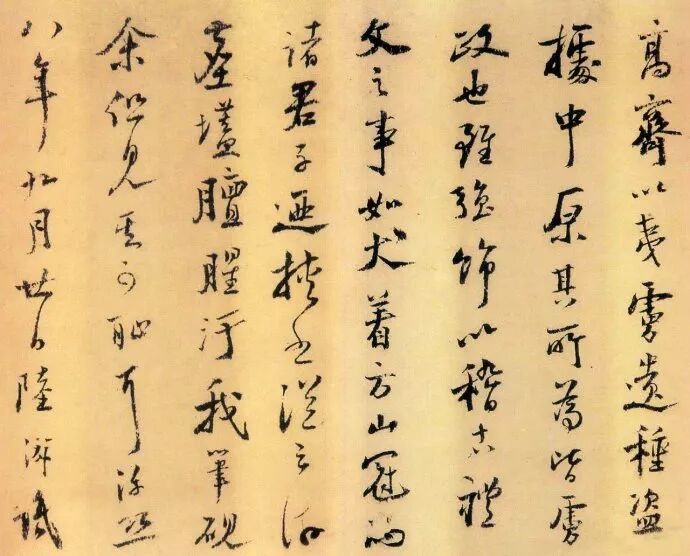 高齊以夷虜遺種盜
據中原其所為皆虜
政也雖強飾以稽古禮
文之事如犬着方山冠而
諸君子迺挾書從之游
塵壒膻腥汙我筆硯
余但見其可恥耳淳熙
八年九月廿日陸游識